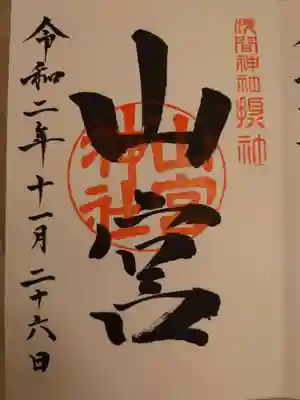 浅間神社摂社
山宮
山宮神社
令和二年十一月二十六日